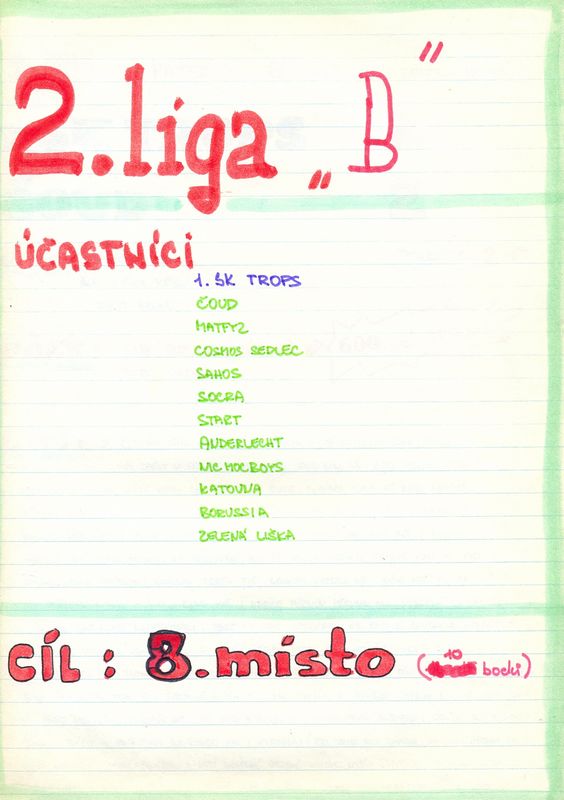 2. liga „B"
ÚČASTNÍCI
1. SK TROPS
ČOUD
MATFYZ
COSMOS SEDLEC
SAHOS
SOCRA
START
ANDERLECHT
MC HOCBOYS
KATOVNA
BORUSSIA
ZELENÁ LIŠKA
CÍL : 8. místo (10 bodů)